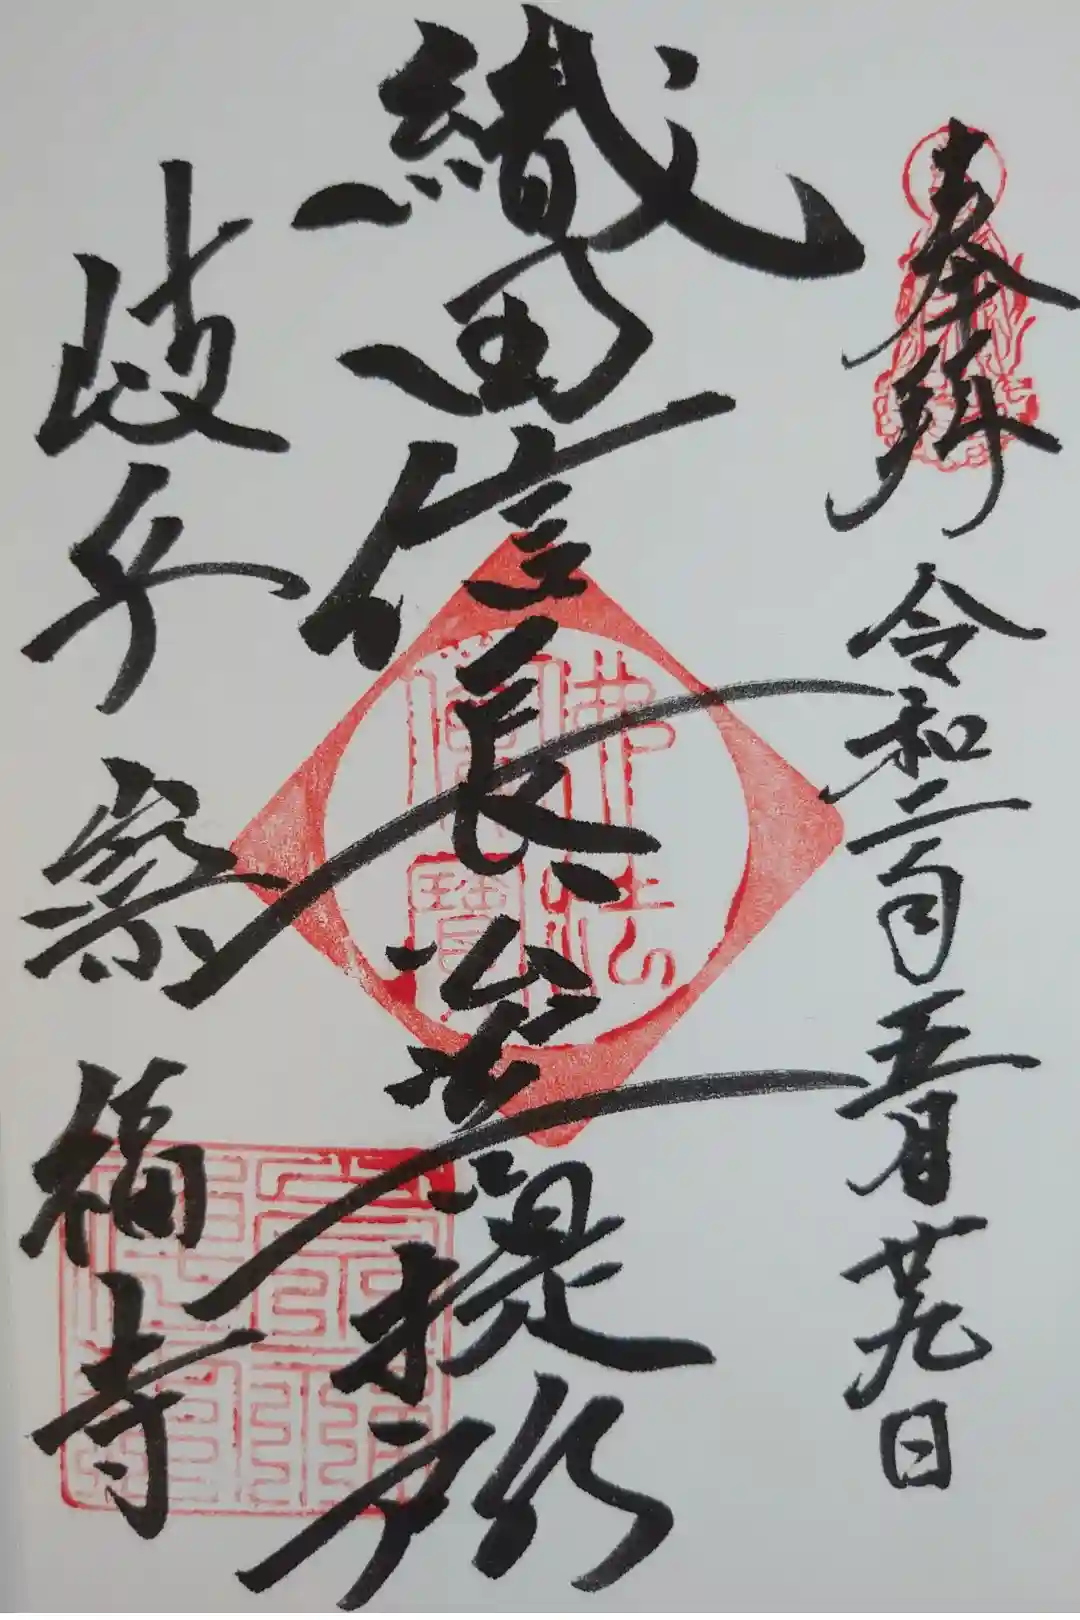 奉拝　令和二年五月廿九日
織田信長公菩提所
岐阜　崇福寺
佛法僧寶